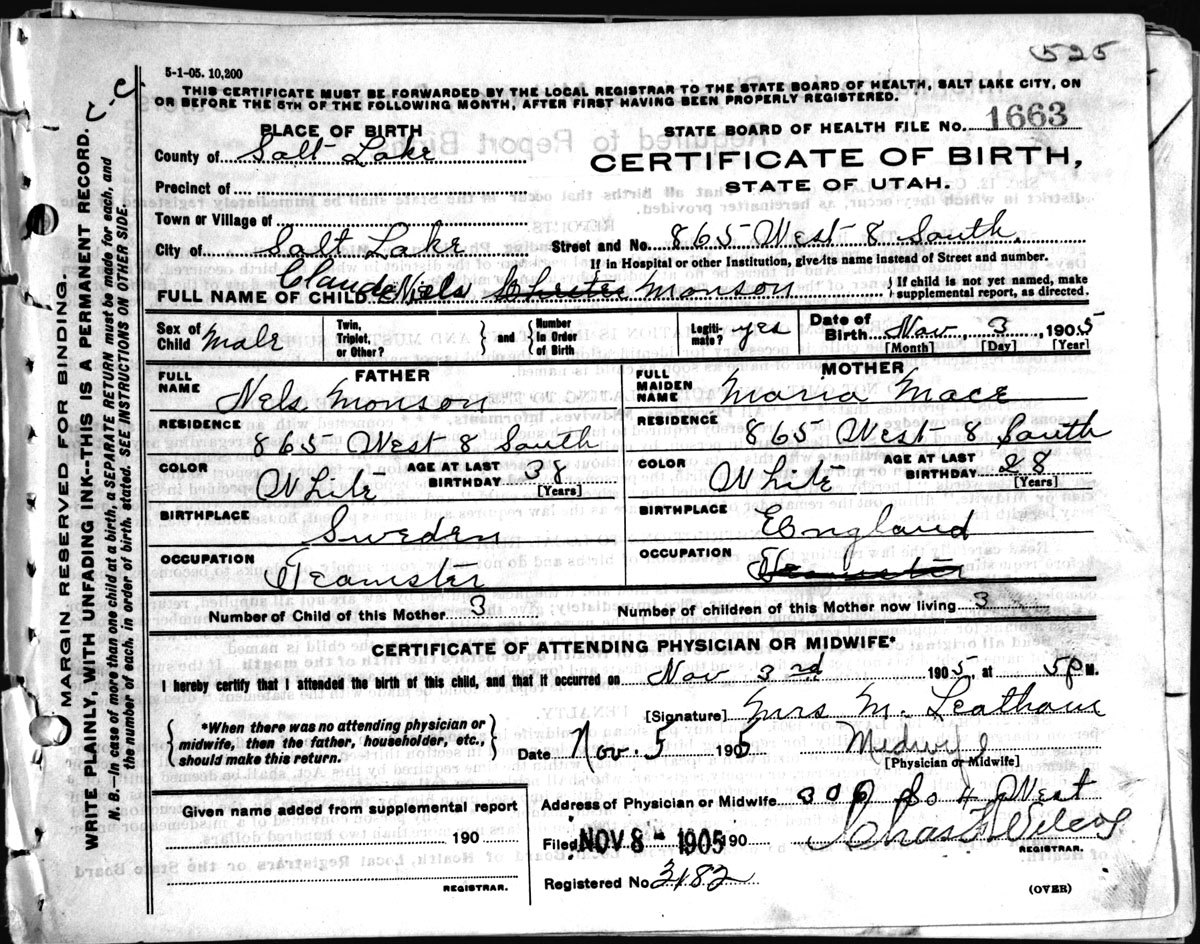 525
5-1-05. 10,200
THIS CERTIFICATE MUST BE FORWARDED BY THE LOCAL REGISTRAR TO THE STATE BOARD OF HEALTH, SALT LAKE CITY, ON
OR BEFORE THE 5TH OF THE FOLLOWING MONTH, AFTER FIRST HAVING BEEN PROPERLY REGISTERED.
PLACE OF BIRTH
STATE BOARD OF HEALTH FILE NO. 1663
County of Salt Lake
CERTIFICATE OF BIRTH,
STATE OF UTAH.
Precinct of
Town or Village of
City of Salt Lake Street and No. 865 West 8 South
If in Hospital or other Institution, give its name instead of Street and number.
Claude
FULL NAME OF CHILD Nels Monson { If child is not yet named, make
supplemental report, as directed.
Sex of Child Male Twin, Triplet, or Other? } and { Number In Order of Birth Legiti-mate? yes Date of Birth Nov 3 1905
[Month] [Day] [Year]
FATHER MOTHER
FULL NAME Nels Monson FULL MAIDEN NAME Maria Mace
RESIDENCE 865 West 8 South RESIDENCE 865 West 8 South
COLOR White AGE AT LAST BIRTHDAY 38 [Years] COLOR White AGE AT LAST BIRTHDAY 28 [Years]
BIRTHPLACE Sweden BIRTHPLACE England
OCCUPATION Teamster OCCUPATION Teamster
Number of Child of this Mother 3 Number of children of this Mother now living 3
CERTIFICATE OF ATTENDING PHYSICIAN OR MIDWIFE*
I hereby certify that I attended the birth of this child, and that it occurred on Nov 3rd 1905, at 5 P M.
{ *When there was no attending physician or midwife, then the father, householder, etc., should make this return. }
[Signature] Mrs M. Leatham
Date Nov. 5 1905 Midwife
[Physician or Midwife]
Given name added from supplemental report
190
REGISTRAR.
Address of Physician or Midwife 306 So 4 West
Filed NOV 8 - 1905 190 Chas Wilcox
REGISTRAR.
Registered No. 3182
(OVER)
MARGIN RESERVED FOR BINDING.
WRITE PLAINLY, WITH UNFADING INK--THIS IS A PERMANENT RECORD.
N. B.--In case of more than one child at a birth, a SEPARATE RETURN must be made for each, and
the number of each, in order of birth, stated. SEE INSTRUCTIONS ON OTHER SIDE.